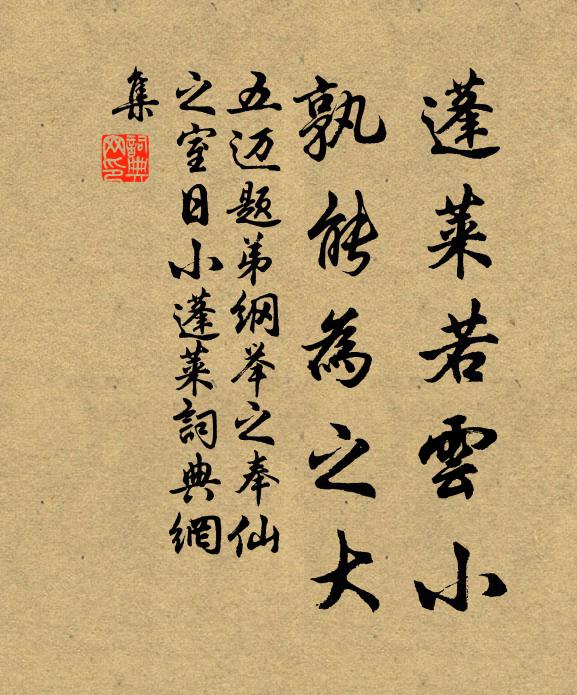 蓬莱若雲小
孰能為之大
五迈题弟纲举之奉仙
之室日小蓬莱詞典網
集
詞典网印